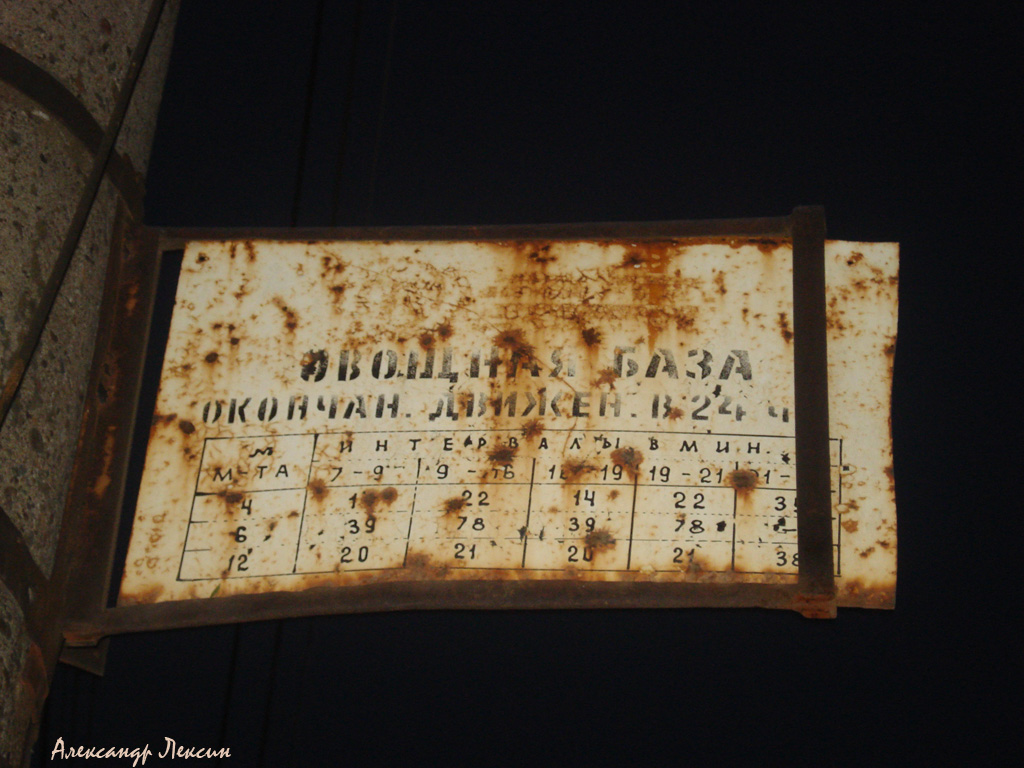 ОВОЩНАЯ БАЗА
ОКОНЧАН. ДВИЖЕН. В 24 Ч
№ ИНТЕРВАЛЫ В МИН.
М-ТА 7-9 9-16 16-19 19-21 21-
4 22 14 22
6 39 78 39 78 -
12 20 21 20 21 38
Александр Лексин